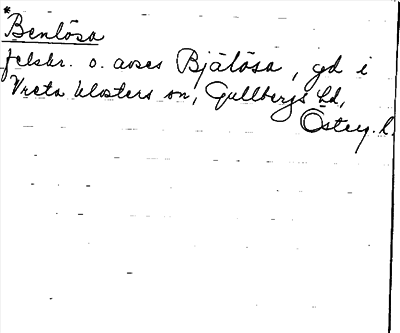 *
Benlösa
felskr. o. avses Bjälösa, gd i
Vreta klosters sn, Gullbergs hd,
Österg. l.